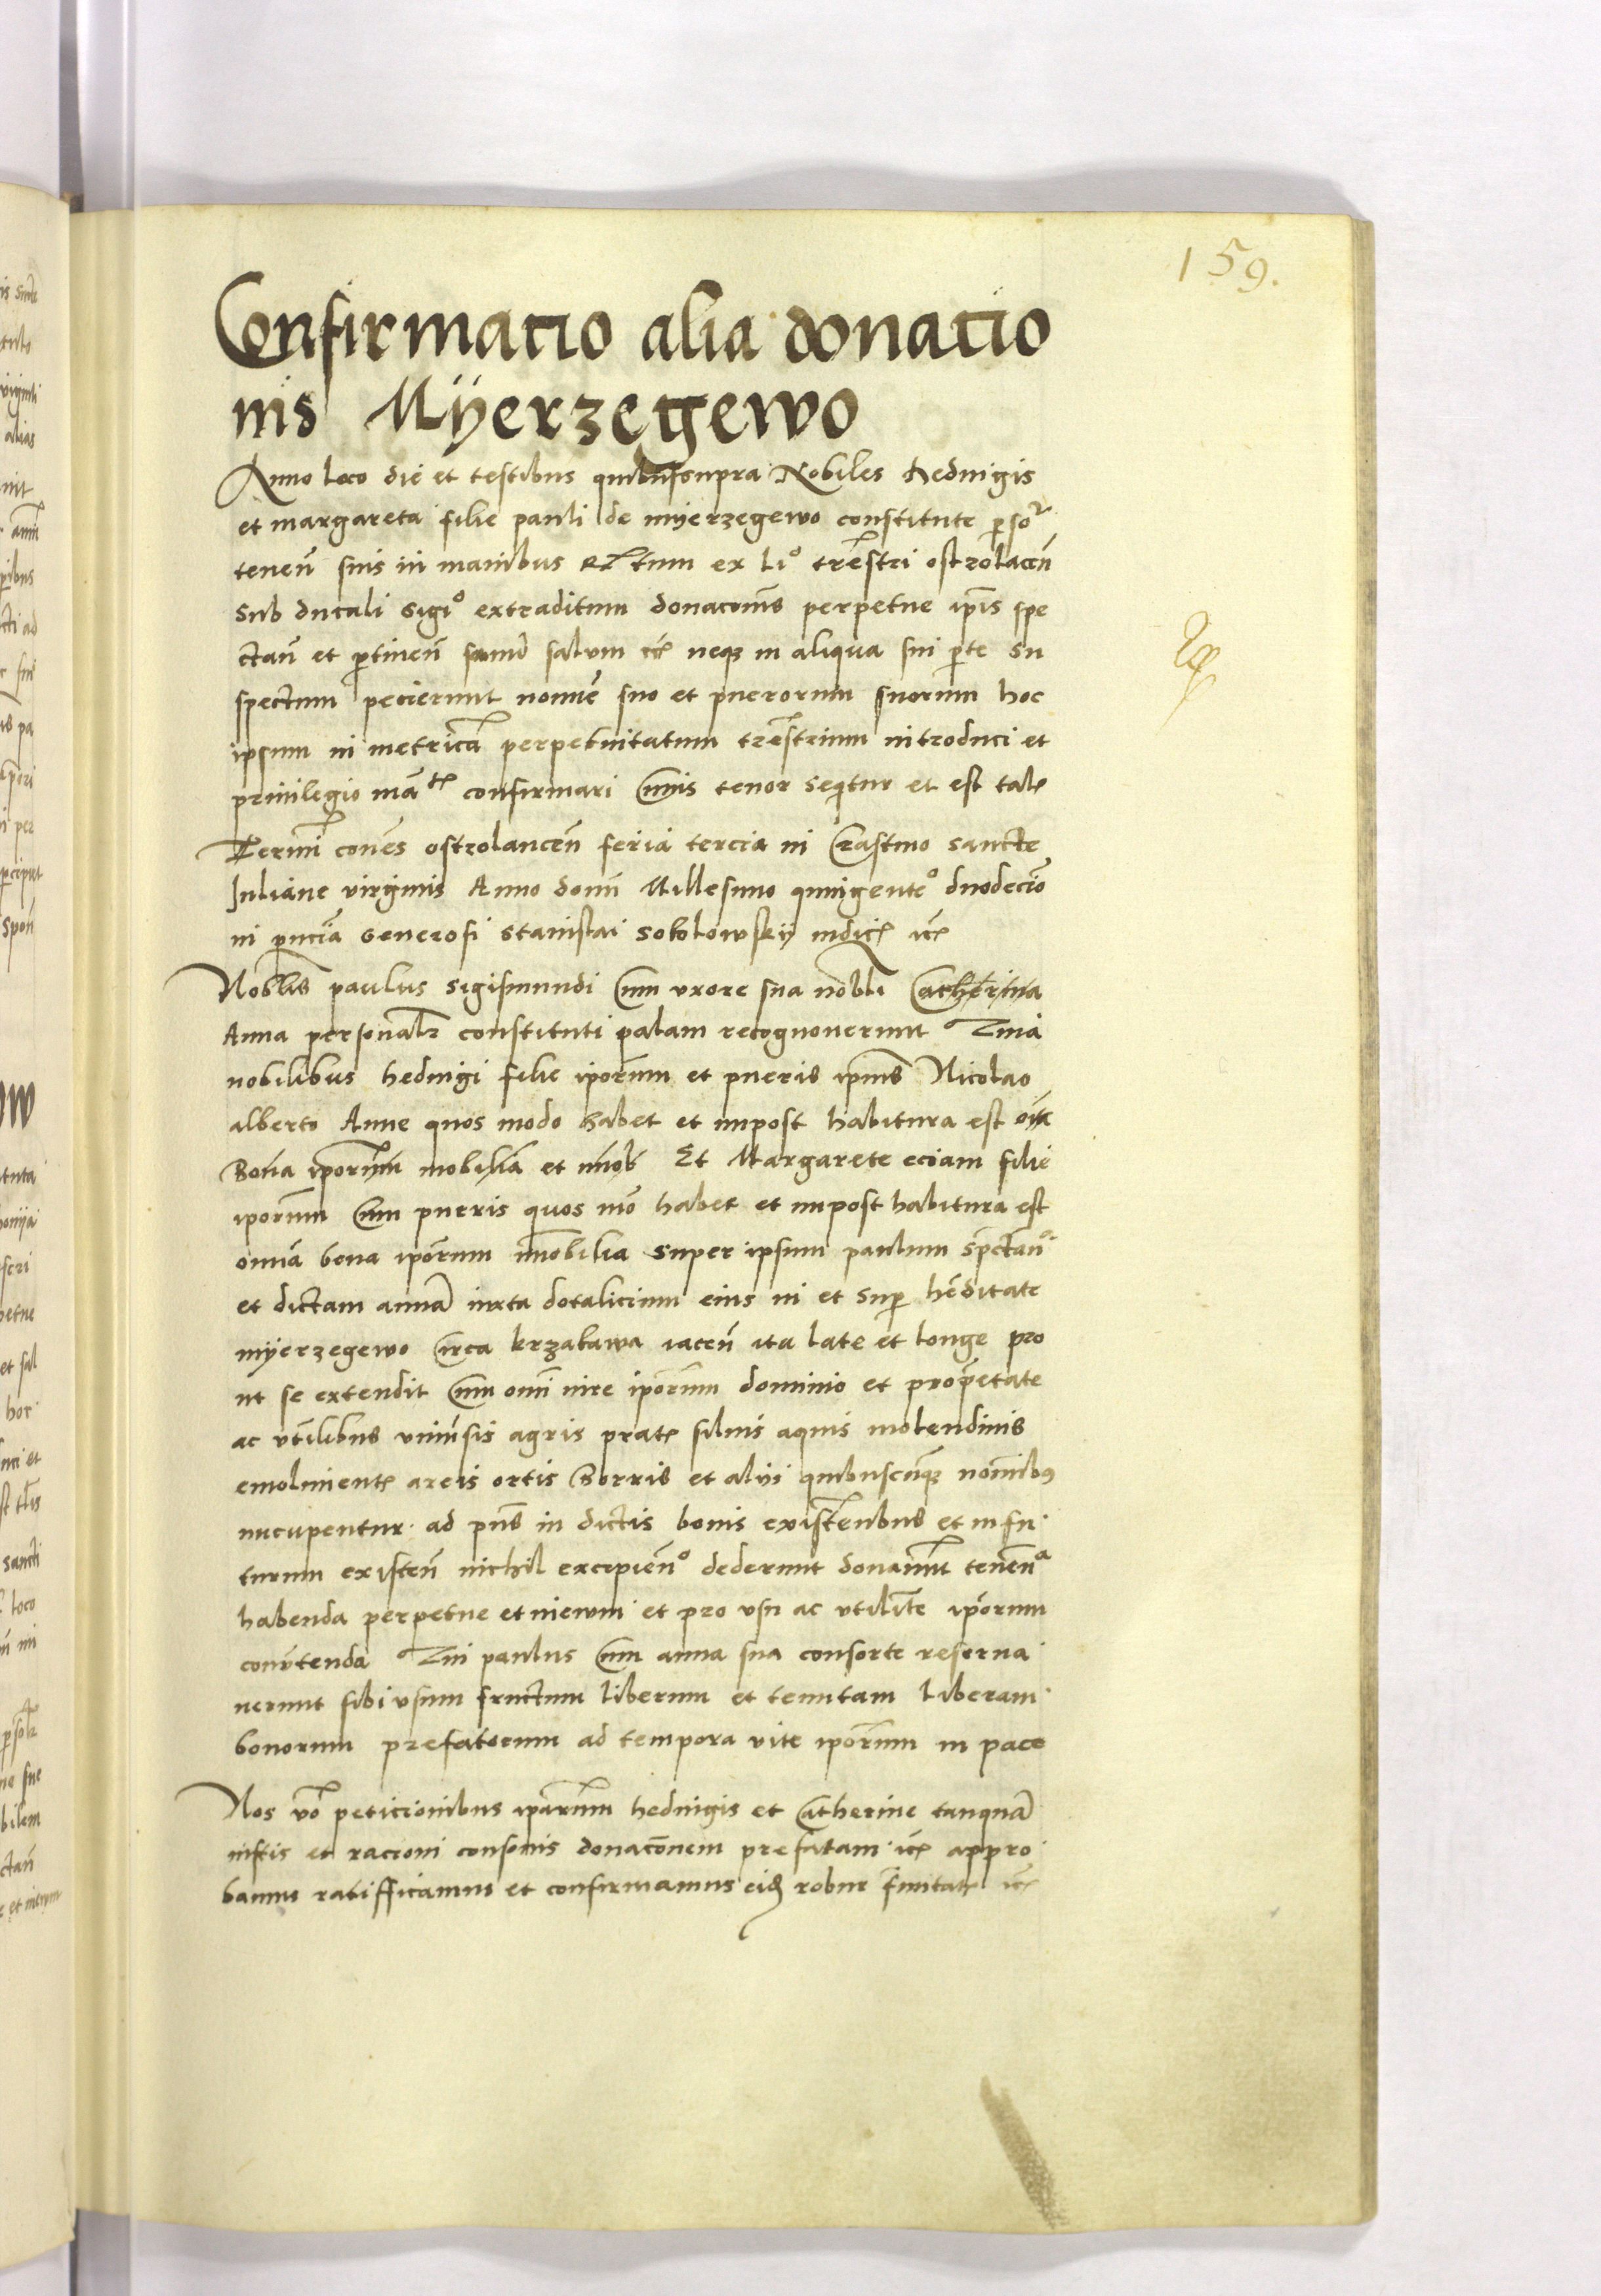 159.
Confirmatio alia donatio
nis Mÿerzegewo
Anno loco die et testibus quibus supra Nobiles Hedvigis
et margareta filie pauli de mÿerzegewo constitute
tenen̄ suis in manibus ex lio terestri ostrolacen̄
sub ducali sigo extraditum donacoīs perpetue ip̄is spe
ctan̄ et ptinen̄ sanu salvum neqz in aliqua sui pte su
spectum pecierunt noīe suo et puerorum suorum hoc
ipsum in metricā perpetuitatum trestrium introduci et
privilegio confirmari Cuius tenor seqitur et est talis
Termī coīes ostrolancen̄ feria tercia in Crastino sancte
Juliane virginis Anno domī Millesimo quingenteo duodecīo
in pn̄cia Generosi stanislai sokolowskÿ iudicis
Nobilis paulus sigismundi Cum uxore sua nobli Catherina
Anna personalr constituti palam recognoverunt Quia
nobilibus hedvigi filie iporum et pueris ipius Nicolao
alberto Anne quos modo habet et inpost habitura est oīa
Bona iporum mobilia et īmob Et Margarete eciam filie
iporum Cum pueris quos mō habet et inpost habitura est
omīa bona iporum īmobilia super ipsum paulum spectan̄
et dictam annā iuxta dotalicium eius in et sup hēditate
mÿerzegewo Circa krzakawa iacen̄ ita late et longe pro
ut se extendit Cum omī iure iporum dominio et proprietate
ac utilibus univsis agris pratis silvis aquis molendinis
emolimentis areis ortis Borris et alijs quibuscūqz nomībus
nucupentur ad pn̄s in dictis bonis existentibus et in fu
turum existen̄ nichil excipieno dederunt donarunt tenena
habenda perpetue et in evum et pro usu ac utilitate iporum
convtenda Qui paulus Cum anna sua consorte reserva
verunt sibi usum fructum liberum et tenutam liberam
bonorum prefatorum ad tempora vite iporum in pace
Nos vō peticionibus iparum hedvigis et Catherine tanquā
iustis et racioni consonis donacōnem prefatam appro
bamus ratifficamus et confirmamus robur firmitatis